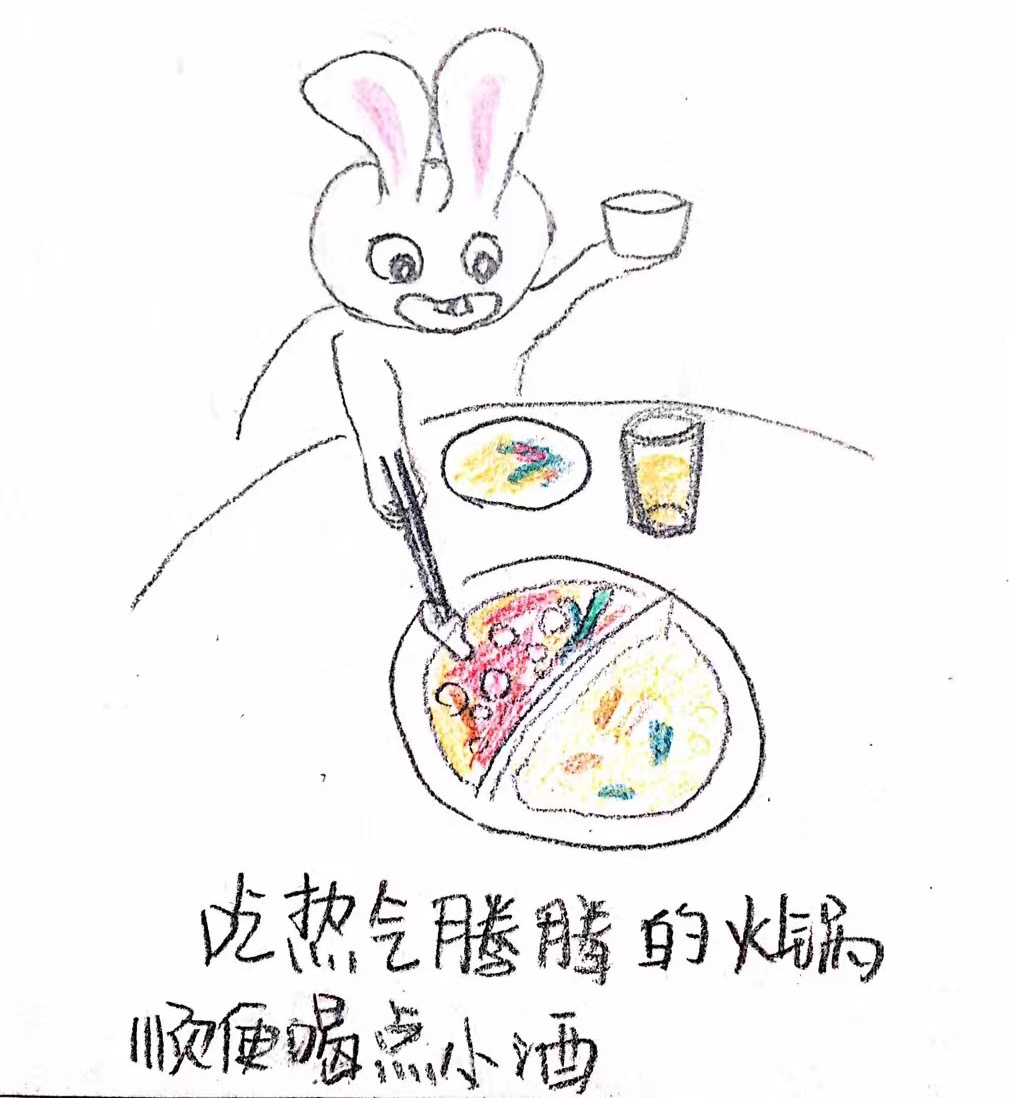 吃热气腾腾的火锅
顺便喝点小酒